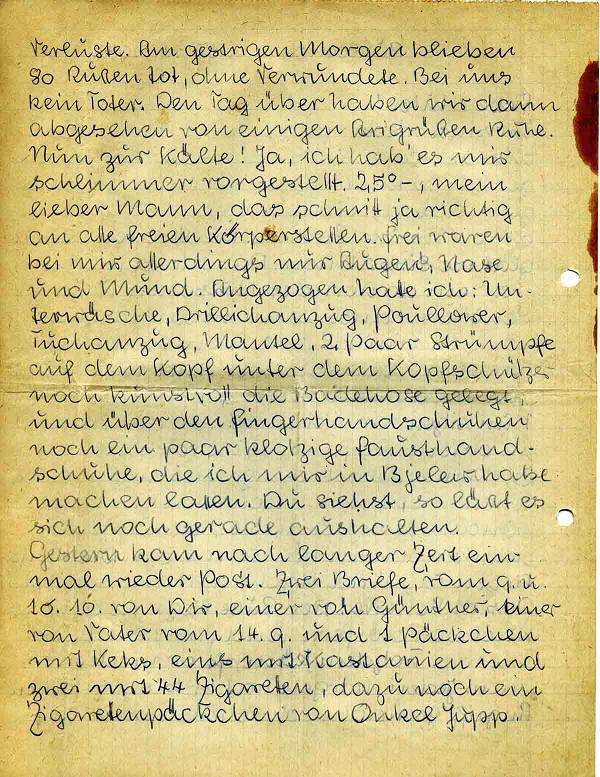 Verluste. Am gestrigen Morgen blieben
80 Russen tot, ohne Verwundete. Bei uns
kein Toter. Den Tag über haben wir dann
abgesehen von einigen Ruhe.
Nun zur Kälte! Ja, ich hab' es mir
schlimmer vorgestellt. 25°-, mein
lieber Mann, das schnitt ja richtig
an alle freien Körperstellen. Frei waren
bei mir allerdings nur Augen, Nase
und Mund. Angezogen hate ich: Un-
terwäsche, Drillichanzug, Poullower,
Tuchanzug, Mantel, 2 Paar Strümpfe
auf dem Kopf unter dem Kopfschützer
noch kunstvoll die Badehose gelegt,
und über den Fingerhandschuhen
noch ein paar klotzige Fausthand-
schuhe, die ich mir in Bjelew habe
machen lassen. Du siehst, so läßt es
sich noch gerade aushalten.
Gestern kam nach langer Zeit ein-
mal wieder Post. Zwei Briefe, vom 9. u.
10. von Dir, einer von Günther, einer
von Vater vom 14. 9. und 1 Päckchen
mit Keks, eins mit Kastanien und
zwei mit 44 Zigareten, dazu noch ein
Zigaretenpäckchen von Onkel Jupp.